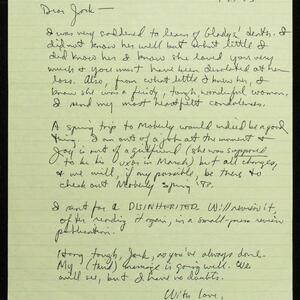 Dear Jork—
I was very saddened to learn of Gladys' death. I
did not know her well but what little I
did know her I know she loved you very
much & you must have been devastated at her
loss. Also, from what little I knew her, I
know she was a feisty, tough, wonderful woman.
I send my most heartfelt condolences.
A spring trip to Moberly would indeed be a good
thing. I am out of a job at the moment &
Jay is out of a girlfriend (she was supposed
to be his in March) but all changes,
& we will, if any possible, be there to
check out Moberly spring '87.
I sent for a DISINHERITED & I'll review it,
after reading it again, in a small-press review
publication.
Hang tough, Jork, as you've always done.
My (third) marriage is going well. We
will see, but I have no doubts.
With love,